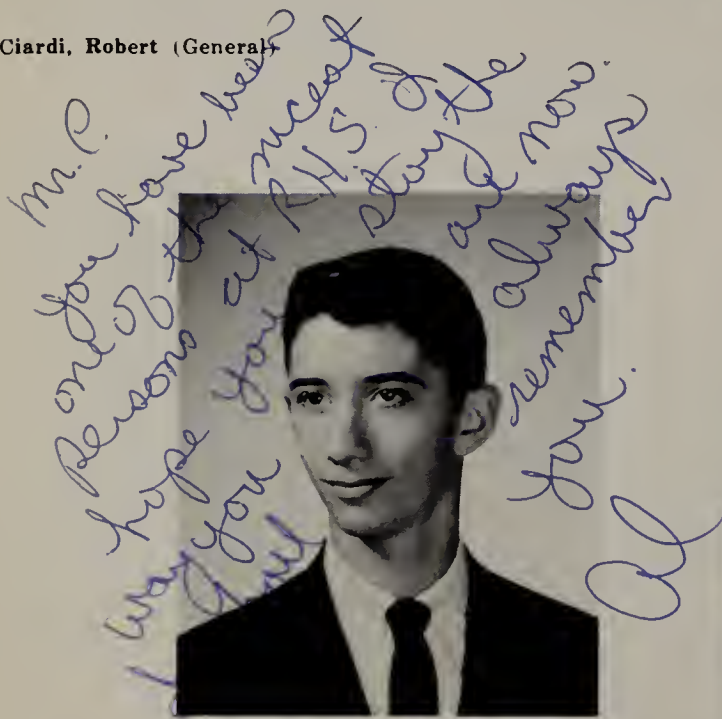 Ciardi, Robert (General)
Mr. C.
You have been
one of the nicest
Persons at R.H.S. I
hope you stay the
way you are now.
I shall always
remember
you.
Al